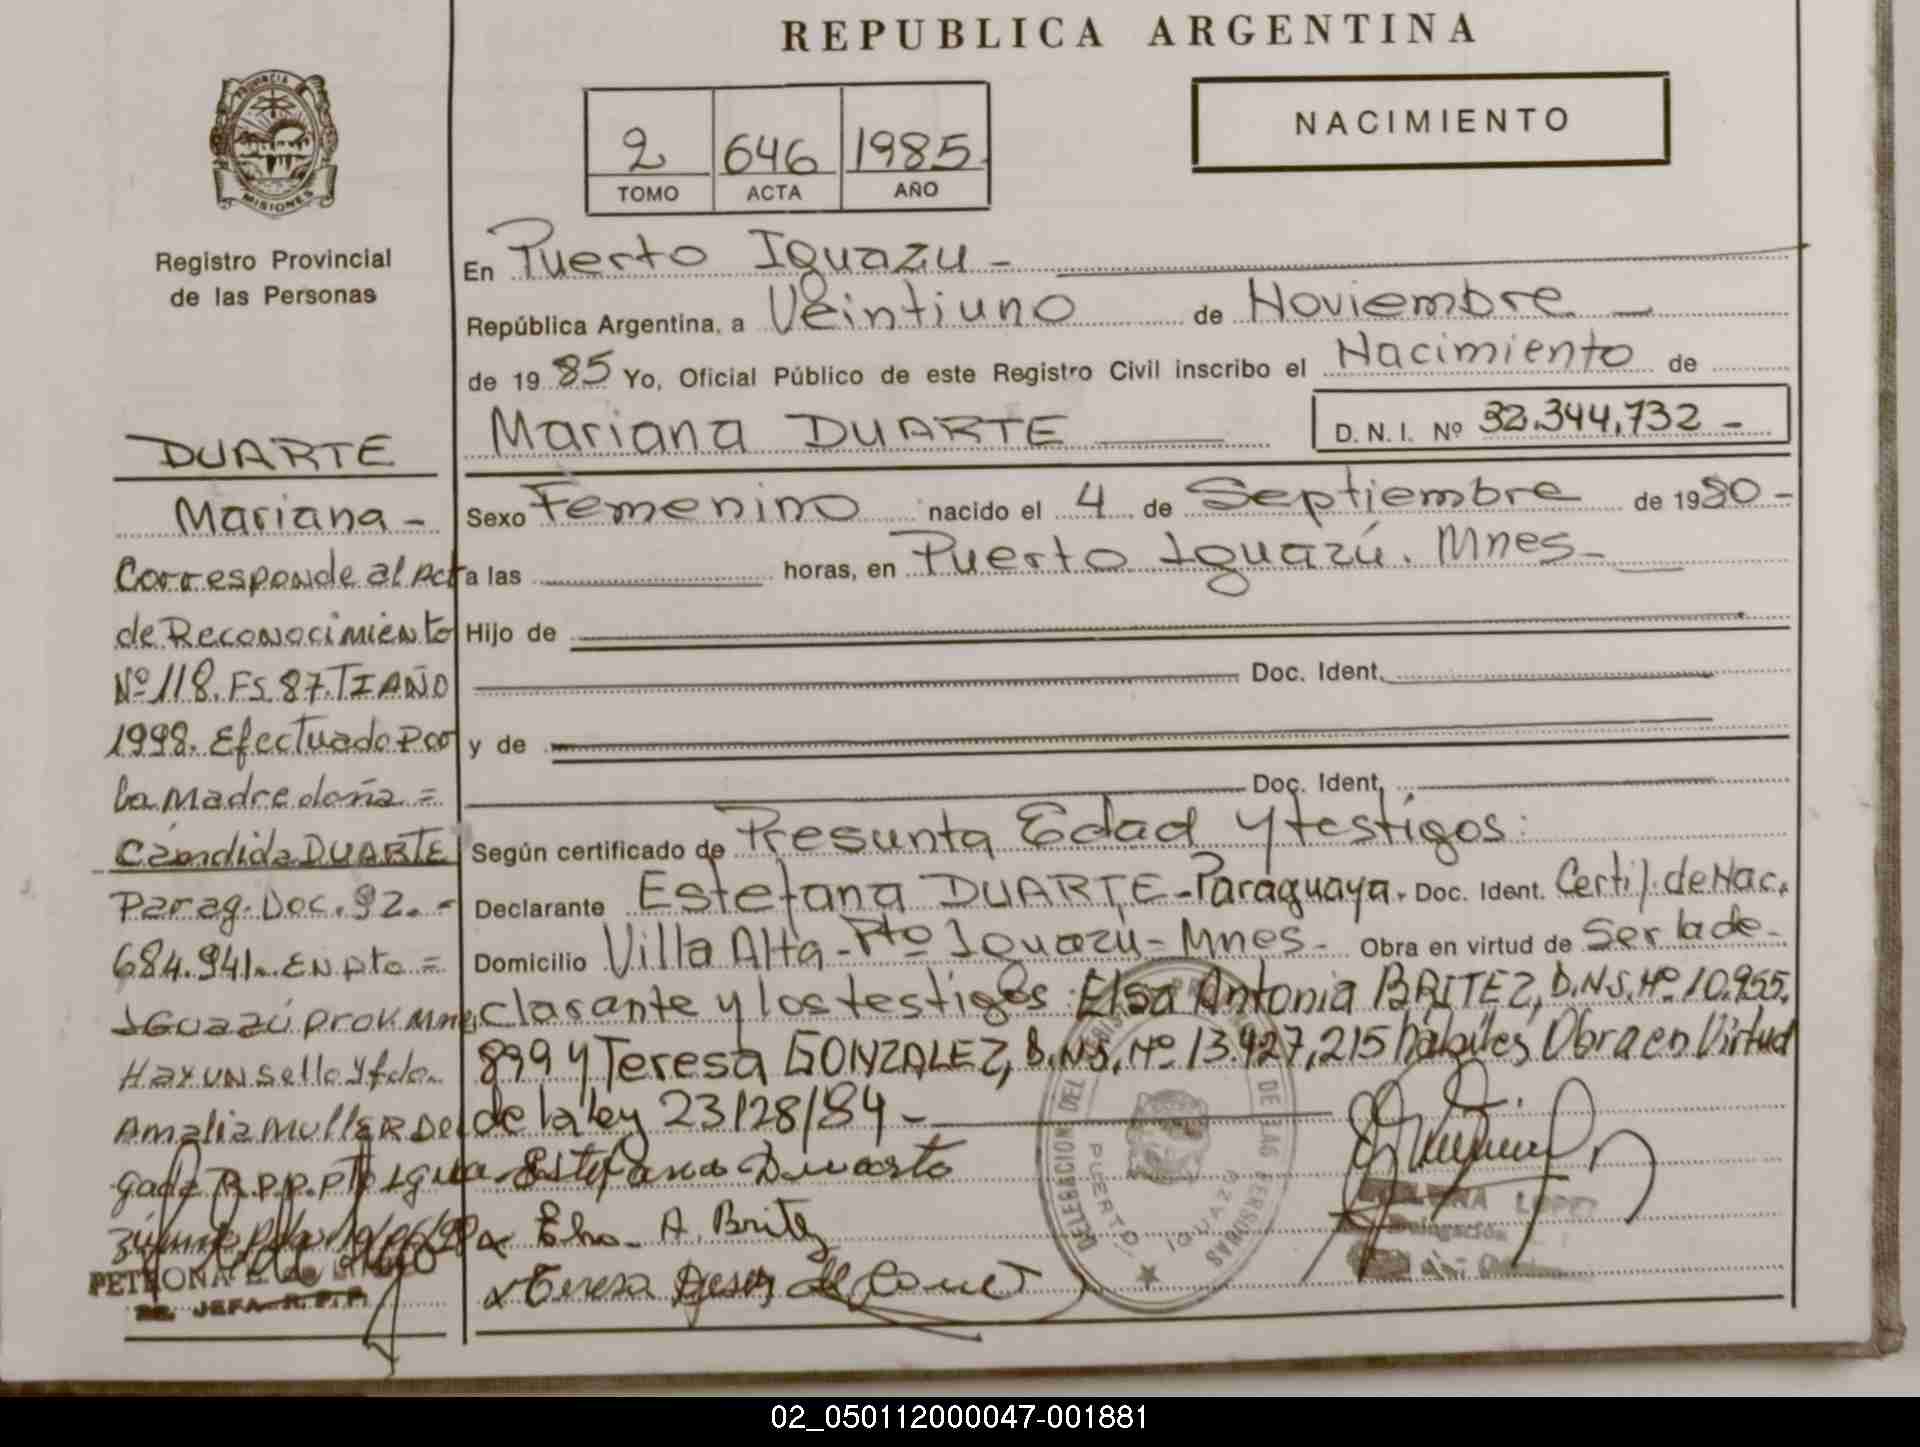 REPUBLICA ARGENTINA
PROVINCIA
MISIONES
Registro Provincial
de las Personas
2 646 1985
TOMO ACTA AÑO
NACIMIENTO
En Puerto Iguazu -
República Argentina, a Veintiuno de Noviembre
de 1985 Yo, Oficial Público de este Registro Civil inscribo el Nacimiento de
Mariana DUARTE D.N.I. Nº 32.344,732 -
Sexo Femenino nacido el 4 de Septiembre de 1980 -
a las horas, en Puerto Iguazú. Mnes -
Hijo de
Doc. Ident.
y de
Doc. Ident.
Según certificado de Presunta Edad y testigos:
Declarante Estefana DUARTE - Paraguaya. Doc. Ident. Certif. de Nac.
Domicilio Villa Alta - Pto Iguazu - Mnes - Obra en virtud de Ser la de-
clarante y los testigos: Elsa Antonia BRITEZ, D.N.I. Nº 10.955.
899 y Teresa GONZALEZ, D.N.I. Nº 13.427,215 hábiles, Obra en Virtud
de la ley 23128/84 -
Estefana Duarte
x Elsa A. Britez
x Teresa
DUARTE
Mariana -
Corresponde al Act
de Reconocimiento
Nº 118. Fs 87. TI AÑO
1998. Efectuado Por
la Madre doña =
Cándida DUARTE
Parag. Doc. 92. -
684.941. EN Pto =
IGuazú Prov. Mnes.
Hay un Sello y fdo.
Amalia MULLER Del
gada R.P.P. Pto Igua
PETRONA
JEFA R.P.P.
DELEGACION DEL REGISTRO PROVINCIAL DE LAS PERSONAS
PUERTO IGUAZU
LOPEZ
Delegación
02_050112000047-001881